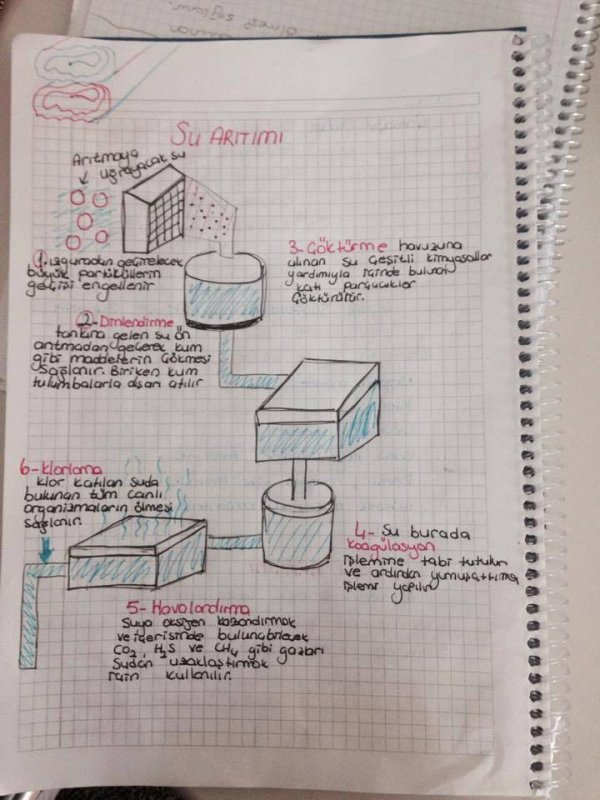 olmesi sağlanır.
SU ARITIMI
Arıtmaya
uğrayacak su
1. ızgaradan geçirelecek
büyük partiküllerin
geçişi engellenir
2- Dinlendirme
tankına gelen su ön
arıtmadan geçerek kum
gibi maddelerin çökmesi
sağlanır. Biriken kum
tulumbalarla dışarı atılır
3- Çöktürme havuzuna
alınan su çeşitli kimyasallar
yardımıyla içinde bulunan
katı parçacıklar
çöktürülür.
4- Su burada
koagülasyon
işlemine tabi tutulur
ve ardından yumuşattırma
işlemi yapılır
5- Havalandırma
Suya oksijen kazandırmak
ve içerisinde bulunabilecek
CO2, H2S ve CH4 gibi gazları
sudan uzaklaştırmak
için kullanılır.
6- Klorlama
Klor katılan suda
bulunan tüm canlı
organizmaların ölmesi
sağlanır.